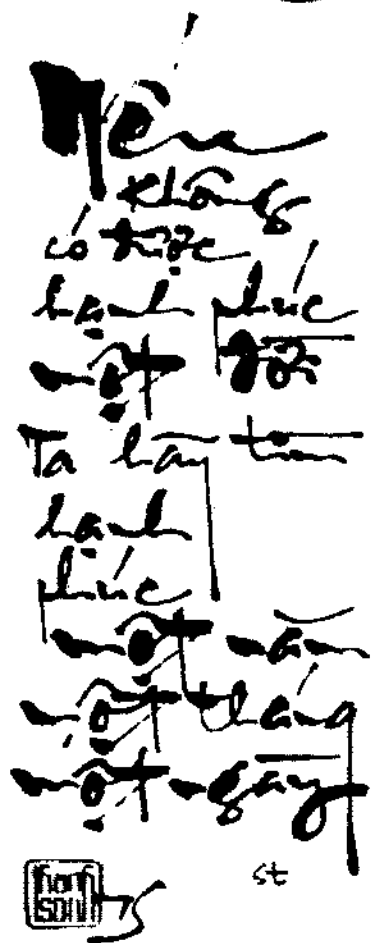 Nếu
không
có được
hạnh phúc
một đời
Ta hãy tìm
hạnh
phúc
một năm
một tháng
một ngày
st
thanh
sơn